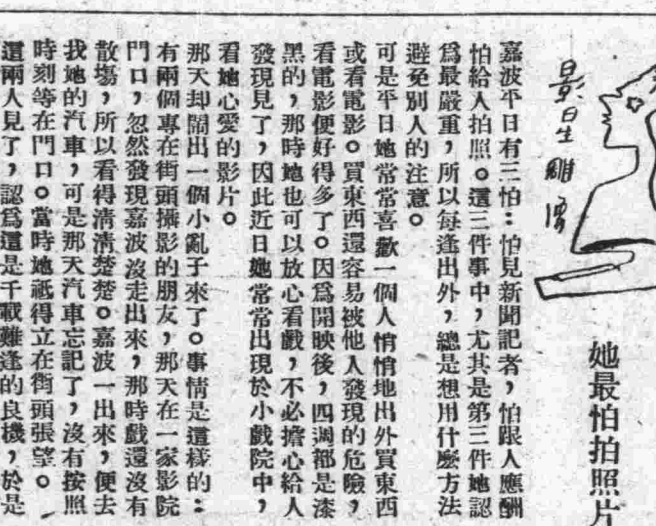 她最怕拍照片
嘉波平日有三怕：怕見新聞記者，怕跟人應酬
怕給人拍照。這三件事中，尤其是第三件她認
爲最嚴重，所以每逢出外，總是想用什麽方法
避免別人的注意。
可是平日她常常喜歡一個人悄悄地出外買東西
或看電影。買東西還容易被他人發現的危險，
看電影便好得多了。因爲開映後，四週都是漆
黑的，那時她也可以放心看戲，不必擔心給人
發現見了，因此近日她常常出現於小戲院中，
看她心愛的影片。
那天却鬧出一個小亂子來了。事情是這樣的：
有兩個專在街頭攝影的朋友，那天在一家影院
門口，忽然發現嘉波沒走出來，那時戲還沒有
散塲，所以看得清清楚楚。嘉波一出來，便去
我她的汽車，可是那天汽車忘記了，沒有按照
時刻等在門口。當時她祇得立在街頭張望。
這兩人見了，認爲這是千載難逢的良機，於是